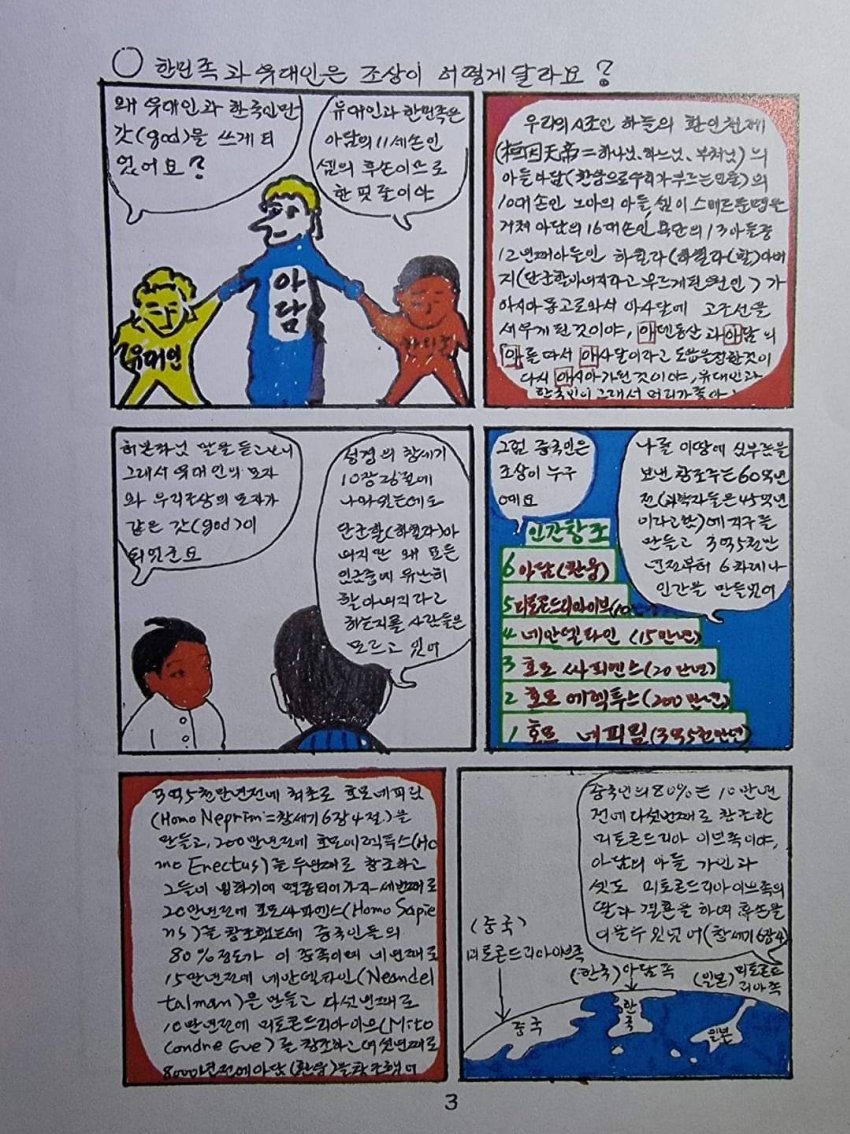 ○ 한민족과 유대인은 조상이 어떻게 달라요?
왜 유대인과 한국인만
갓(god)을 쓰게 되
었어요?
유대인과 한민족은
아담의 11세손인
셈의 후손이므로
한 핏줄이야
아담
유대인
한민족
우리의 시조인 하늘의 환인천제
(桓因天帝=하나님, 하느님, 부처님)의
아들 아담(환웅으로 우리가 부르는 인물)의
10대손인 노아의 아들 셈이 스메르문명을
거쳐 아담의 16대손인 욕단의 13아들중
12번째아들인 하윌라(하윌라(할)아버
지(단군할아버지라고 부르게된 원인)가
아시아 동고로와서 아사달에 고조선을
세우게 된것이야, 애덴동산과 아담의
아를 따서 아사달이라고 도읍을정한것이
다시 아시아가된 것이야, 유대인과
한국인이 그래서 머리가 좋아
허본좌님 말을 듣고보니
그래서 유대인의 모자
와 우리조상의 모자가
같은 갓(god)이
되었군요
성경의 창세기
10장 절에
나와있는데도
단군할(하윌라)아
버지만 왜 모든
인근중에 유난히
할아버지라고
하는지를 사람들은
모르고 있어
그럼 중국인은
조상이 누구
에요
나를 이땅에 심부름을
보낸 창조주는 60억년
전(과학자들은 45억년
이라고함)에 지구를
만들고 3억5천만
년전부터 6차례나
인간을 만들었어
인간창조
6 아담(환웅)
5 미토콘드리아이브
4 네안델타인 (15만년)
3 호모 싸피엔스(20만년)
2 호모 에렉투스(200만년)
1 호모 네피림(3억5천만년)
3억5천만년전에 최초로 호모네피림
(Homo Neprim=창세기6장4절)을
만들고, 200만년전에 호모에렉투스(Ho
mo Erectus)를 두번째로 창조하고
그들이 빙하기에 멸종되어가자 세번째로
20만년전에 호모싸피엔스(Homo Sapie
ns)를 창조했는데 중국인들의
80%정도가 이 종족이며 네번째로
15만년전에 네안델타인(Neandel
talman)을 만들고 다섯번째로
10만년전에 미토콘드리아이브(Mito
condre Eve)를 창조하고 여섯번째로
8000년전에 아담(환웅)을 창조했어
중국인의 80%는 10만년
전에 다섯번째로 창조한
미토콘드리아 이브족이야,
아담의 아들 가인과
셋도 미토콘드리아이브족의
딸과 결혼을 하여 후손을
이을수 있었어(창세기6장4)
(중국)
미토콘드리아이브족
(한국)아담족
(일본)미토콘드
리아족
중국
한국
일본
3